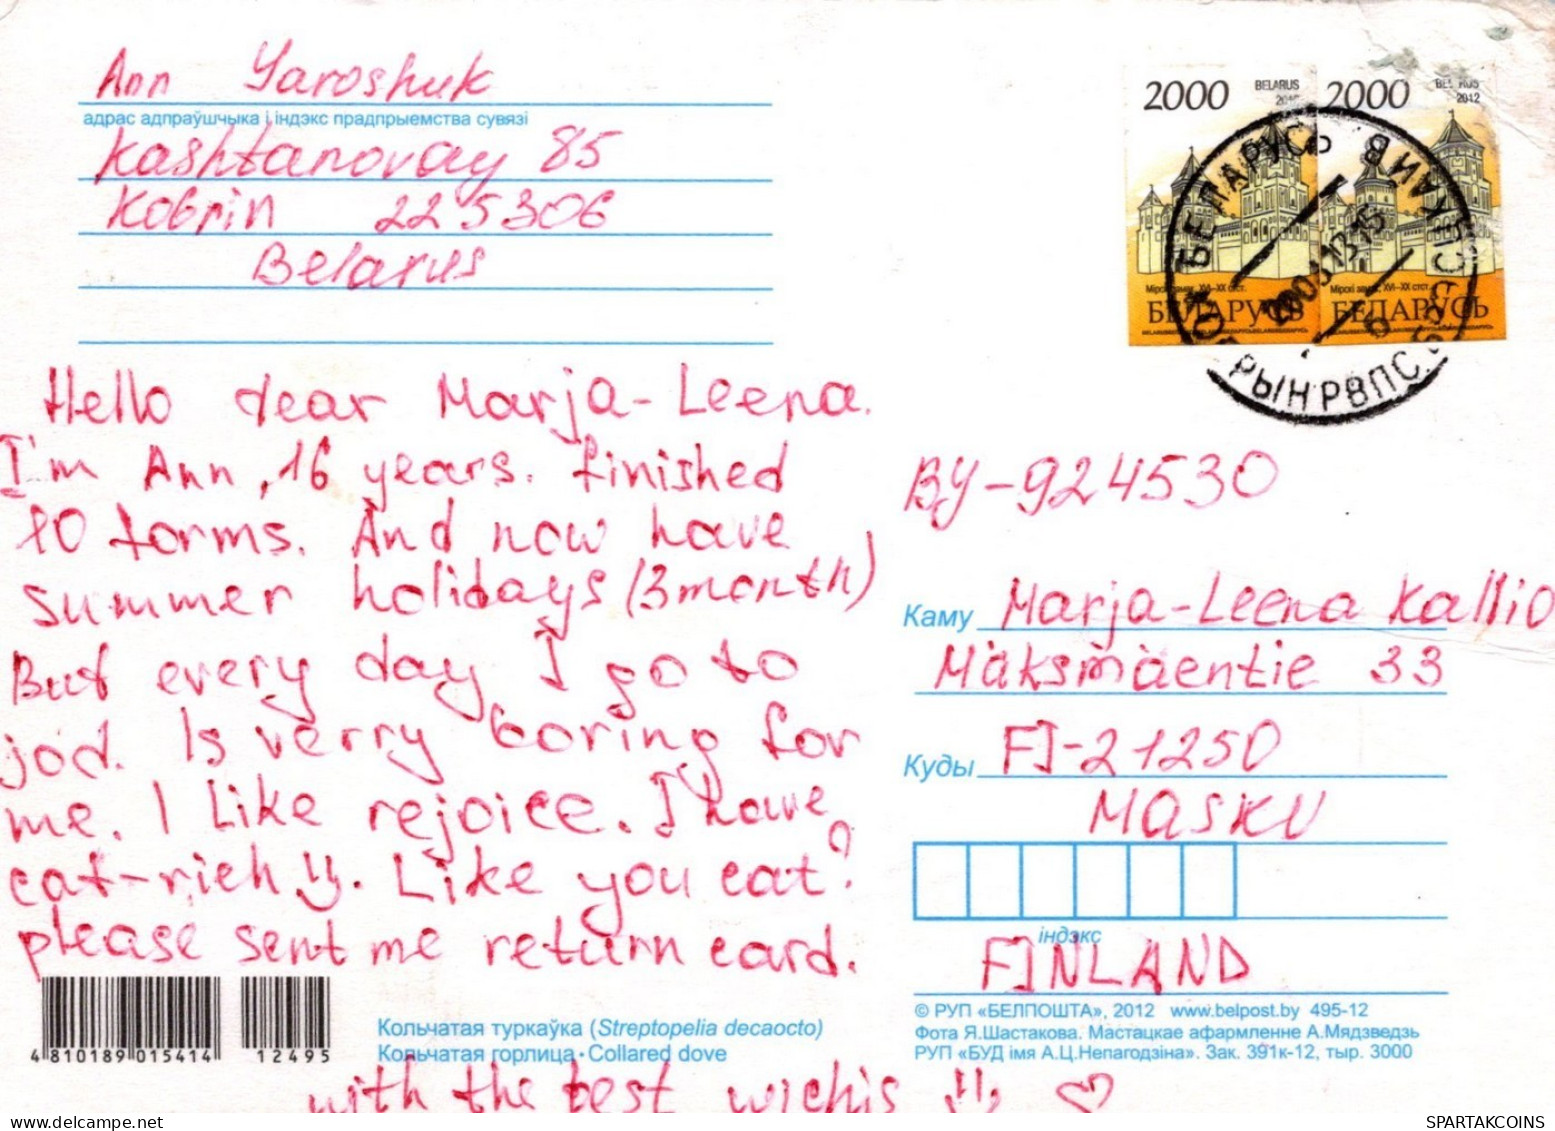 Ann Yaroshuk
адрас адпраўшчыка і індэкс прадпрыемства сувязі
Kashtanovay 85
Kobrin 225306
Belarus
2000 BELARUS
2000 2012
Мірскі замак, XVI–XX стст.
БЕЛАРУСЬ
Мірскі замак, XVI–XX стст.
БЕЛАРУСЬ
БЕЛАРУСЬ
Hello dear Marja-Leena.
I'm Ann, 16 years. finished
10 forms. And now have
summer holidays (3 month)
But every day I go to
jod. Is verry boring for
me. I Like rejoice. I have
cat-rich. Like you cat?
please sent me return card.
with the best wichis
BY-924530
Каму Marja-Leena Kallio
Mäksmäentie 33
Куды FI-21250
MASKU
індэкс
FINLAND
4 810189 015414 12495
Кольчатая туркаўка (Streptopelia decaocto)
Кольчатая горлица · Collared dove
© РУП «БЕЛПОШТА», 2012 www.belpost.by 495-12
Фота Я.Шастакова. Мастацкае афармленне А.Мядзведзь
РУП «БУД імя А.Ц.Непагодзіна». Зак. 391к-12, тыр. 3000
SPARTAKCOINS